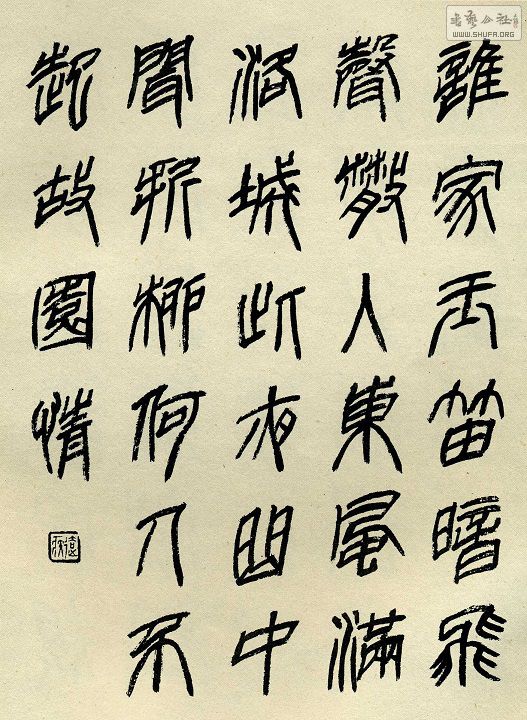 誰家玉笛暗飛
聲散入東風滿
洛城此夜曲中
聞折柳何人不
起故園情
书艺公社
WWW.SHUFA.ORG